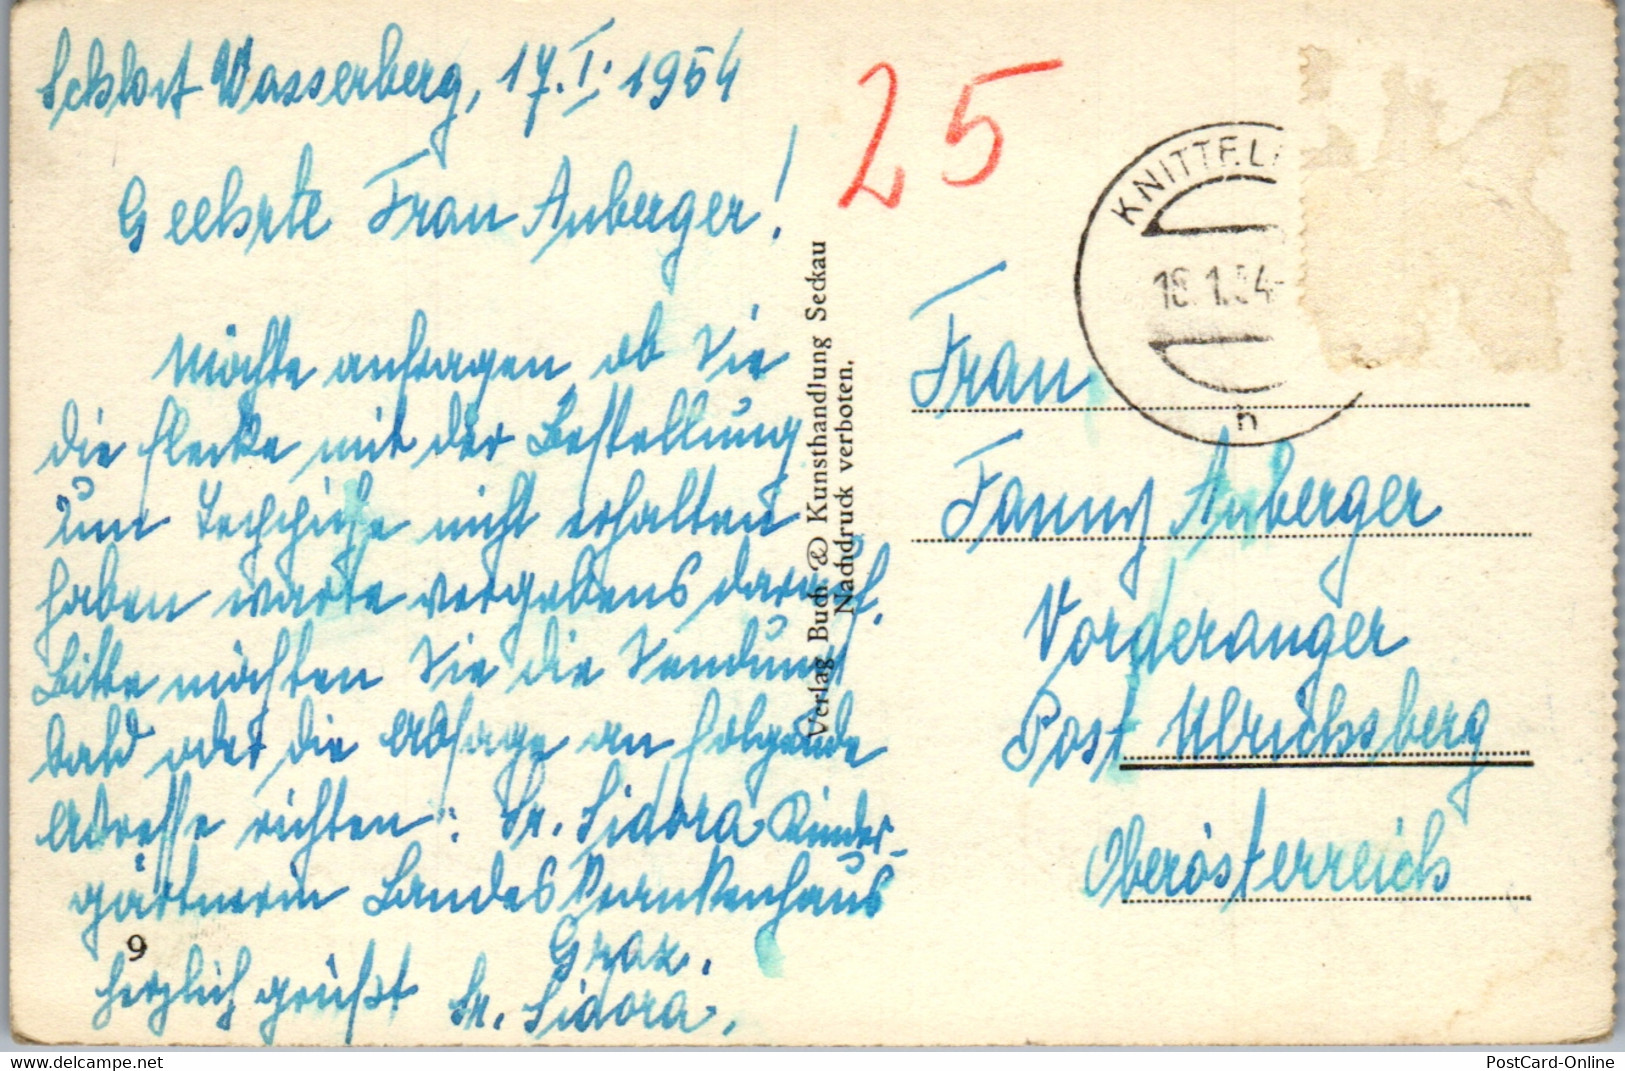 Schloß Wasserberg, 17.I.1954
Geehrte Frau Auberger!
Möchte anfragen ob Sie
die Flecke mit der Bestellung
zum Teppiche nicht erhalten
haben warte vergebens darauf.
Bitte möchten Sie die Sendung
bald oder die Absage an folgende
Adresse richten: Sr. Sidora Kinder-
gärtnerin Landes Krankenhaus
Graz.
herzlich grüßt Sr. Sidora.
9
Verlag Buch & Kunsthandlung Seckau
Nachdruck verboten.
25
KNITTELF
18.1.54-
h
Frau
Fanny Auberger
Vorderanger
Post Ulrichsberg
Oberösterreich
delcampe.net
PostCard-Online